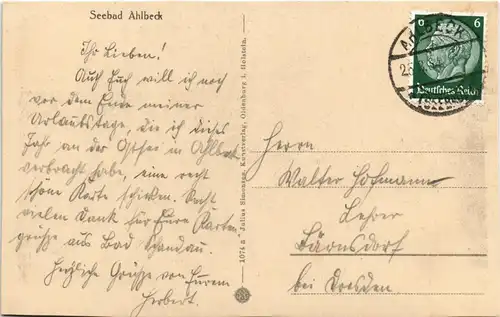 Seebad Ahlbeck
Ihr Lieben!
Auch Euch will ich noch
vor dem Ende meiner
Urlaubstage, die ich dieses
Jahr an der Ostsee in Ahlbeck
verbracht habe, eine recht
schöne Karte schicken. Recht
vielen Dank für Eure Karten-
grüße aus Bad Schandau.
Herzliche Grüße von Eurem
Herbert.
1074 a Julius Simonsen, Kunstverlag, Oldenburg i. Holstein.
6 6
Deutsches Reich
AHLBECK
Herrn
Walter Hofmann
Lehrer
Bärnsdorf
bei Dresden